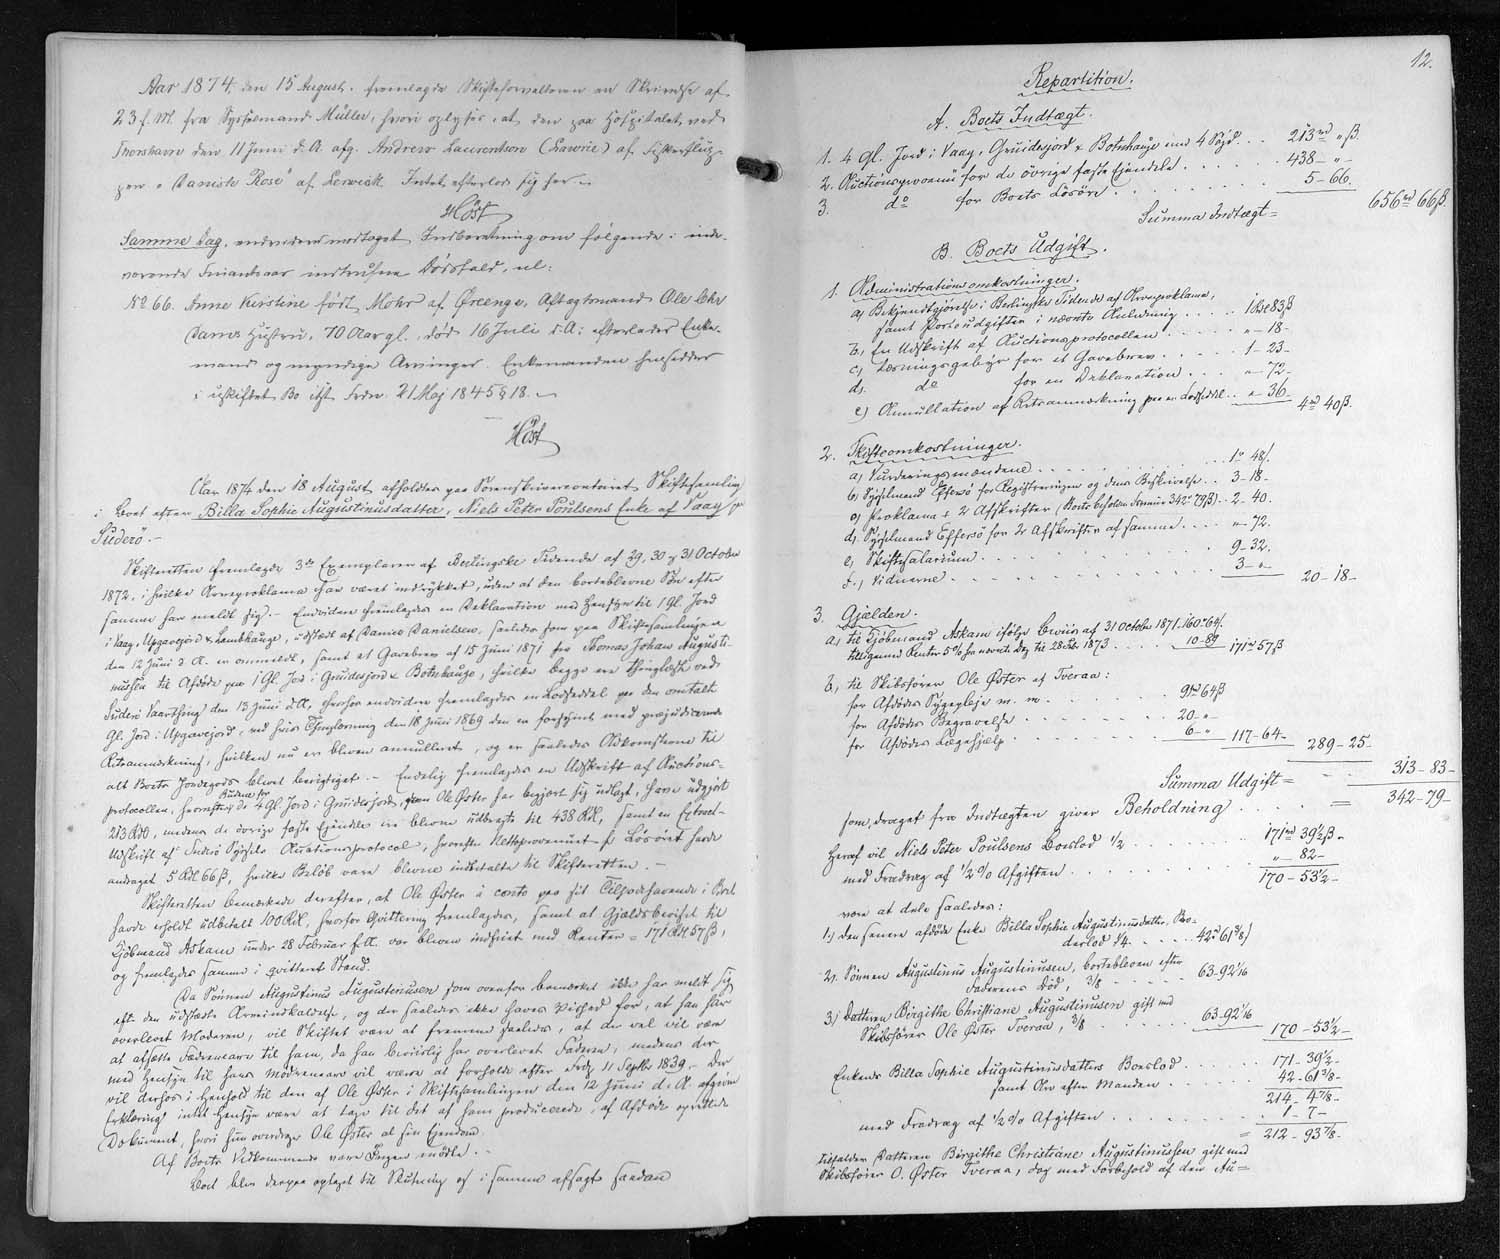 Aar 1874, den 15 August, fremlagde Skifteforvalteren en Skrivelse af
23 f. M. fra Sysselmand Müller, hvori oplyses, at den paa Hospitalet ved
Thorshavn den 11 Juni d. A. afg. Andrew Laurentson (Lawrie) af Fiskerslup-
pen "Danish Rose" af Lerwick Intet efterlod sig her.
Höst
Samme Dag, endvidere modtaget Indberetning om følgende i inde-
værende Finantsaar indtrufne Dødsfald, nl:
No 66. Anne Kirstine født Mohr af Øreenge, Aftægtsmand Ole Chr
Dams Hustru, 70 Aar gl., død 16 Juli d. A; efterlader Enke-
mand og myndige Arvinger. Enkemanden hensidder
i uskiftet Bo efter Frdn. 21 Maj 1845 § 18.
Höst
Aar 1874 den 18 August afholdtes paa Sorenskrivercontoiret Skiftesamling
i Boet efter Billa Sophie Augustinusdatter, Niels Peter Poulsens Enke af Vaag paa
Suderö.
Skifteretten fremlagde 3de Exemplarer af Berlingske Tidende af 29, 30 og 31 October
1872, i hvilke Arveproklama har været indrykket, uden at den borteblevne Søn efter
samme har meldt sig. Endvidere fremlagdes en Deklaration med Hensyn til 1 Gl. Jord
i Vaag, Uppavejord & Lambhauge, udstædt af Daniel Danielsen, saaledes som paa Skiftesamlingen
den 12 Juni d. A. er ommeldt, samt et Gavebrev af 15 Juni 1871 fra Thomas Johan Augusti-
nussen til Afdøde paa 1 Gl. Jord i Gruidesjord & Botnhauge, hvilke begge ere thinglæste ved
Suderö Vaarthing den 13 Juni d. A, hvorhos endvidere fremlagdes en Lodseddel paa den omtalte
Gl. Jord i Uppavejord, ved hvis Thinglæsning den 18 Juni 1869 den er forsynet med prejudicerende
Retsanmærkning, hvilken nu er bleven annulleret, og er saaledes Adkomsterne til
alt Boets Jordegods blevet berigtiget. Endelig fremlagdes en Udskrift af Auctions-
protocollen, hvorefter Budene for de 4 Gl. Jord i Gruidesjord, som Ole Øster har begjært sig udlagt, have udgjort
213 Rd, medens de øvrige faste Ejendele ere blevne udbragte til 438 Rd, samt en Extract-
Udskrift af Suderö Syssels Auktionsprotocol, hvorefter Nettoprovenuet f. Løsøret havde
andraget 5 Rd 66 ß, hvilke Beløb vare blevne indbetalte til Skifteretten.
Skifteretten bemærkede derefter, at Ole Øster à conto paa sit Tilgodehavende i Boet
havde erholdt udbetalt 100 Rd, hvorfor Qvittering fremlagdes, samt at Gjældsbeviset til
Kjøbmand Askam under 28 Februar f. A. var bleven indfriet med Renter = 171 Rd 57 ß,
og fremlagdes samme i qvitteret Stand.
Da Sønnen Augustinus Augustinusen som ovenfor bemærket ikke har meldt sig
efter den udstædte Arveindkaldelse, og der saaledes ikke haves Vished for, at han har
overlevet Moderen, vil Skiftet være at fremme saaledes, at der vel vil være
at afsætte Fædrenearv til ham, da han beviislig har overlevet Faderen, medens der
med Hensyn til hans Mødrenearv vil være at forholde efter Frdg 11 Septbr 1839. Der
vil derhos i Henhold til den af Ole Øster i Skiftesamlingen den 12 Juni d. A. afgivne
Erklæring intet Hensyn være at tage til det af ham producerede, af Afdøde oprettede
Dokument, hvori hun overdrager Ole Øster al sin Ejendom.
Af Boets Vedkommende vare Ingen mødte.
Boet blev derpaa optaget til Slutning og i samme afsagt saadan
12.
Repartition.
A. Boets Indtægt.
1. 4 Gl. Jord i Vaag, Gruidesjord & Botnhauge med 4 Sögd. . . 213 rd " ß
2. Auctionsprovenu for de övrige faste Ejendele . . . . . 438 - " -
3. do for Boets Lösöre . . . . . 5 - 66.
Summa Indtægt = 656 rd 66 ß.
B. Boets Udgift.
1. Administrationsomkostninger.
a, Bekjendtgjörelse i Berlingske Tidende af Arveproklama,
samt Portoudgifter i nævnte Anledning . . . . 1 Rd 83 ß
b, En Udskrift af Auctionsprotocollen . . . . . " - 18 -
c, Læsningsgebyr for et Gavebrev . . . . . 1 - 23 -
d, do for en Deklaration . . . " - 72 -
e) Annullation af Retsanmærkning paa en Lodseddel . . " - 36 - 4 rd 40 ß.
2. Skifteomkostninger.
a) Vurderingsmændene . . . . . 1 " 48 /.
b) Sysselmand Effersö for Registreringen og dens Beskrivelse . . 3 - 18 -
c) Proklama & 2 Afskrifter (Boets beholdne Formue 342 rd 79 ß) . . 2 - 40.
d, Sysselmand Effersö for 2 Afskrifter af samme . . . . " - 72.
e, Skiftesalarium . . . . . 9 - 32.
f., Vidnerne . . . . . 3 - " - 20 - 18 -
3. Gjælden.
a, til Kjöbmand Askam ifølge Beviis af 31 October 1871 - 160 - 64.
tilligemed Renter 5% fra nævnte Dag til 28 Febr 1873 . . . . 10 - 89 171 rd 57 ß
b, til Skibsförer Ole Øster af Tveraa:
for Afdödes Sygepleje m. m. . . . . 91 rd 64 ß
for Afdödes Begravelse . . . . . 20 - " -
for Afdödes Lægehjælp . . . . . 6 - " 117 - 64 - 289 - 25 -
Summa Udgift = 313 - 83 -
som, draget fra Indtægten giver Beholdning . . . . = 342 - 79 -
Heraf vil Niels Peter Poulsens Boeslod 1/2 . . . . . 171 rd 39 1/2 ß
med Fradrag af 1/2 % Afgiften . . . . . " - 82 -
170 - 53 1/2 -
være at dele saaledes:
1.) Den senere afdöde Enke Billa Sophie Augustinusdatter, Bro-
derlod 1/4 . . . . . 42 rd 61 3/8 )
2), Sönnen Augustinus Augustinusen, bortebleven efter
Faderens Död, 3/8 . . . . . 63 - 92 1/16
3.) Datteren Birgithe Christiane Augustinusen gift med
Skibsförer Ole Øster Tveraa, 3/8 . . . . . 63 - 92 1/16 170 - 53 1/2 -
Enkens Billa Sophie Augustinusdatters Boeslod . . . . . 171 - 39 1/2 -
samt Arv efter Manden . . . . . 42 - 61 3/8 -
214 - 4 7/8 -
med Fradrag af 1/2 % Afgiften . . . . . 1 - 7 -
= 212 - 93 7/8 -
tilfalder Datteren Birgithe Christiane Augustinussen gift med
Skibsförer O. Øster Tveraa, dog med Forbehold af den Au=